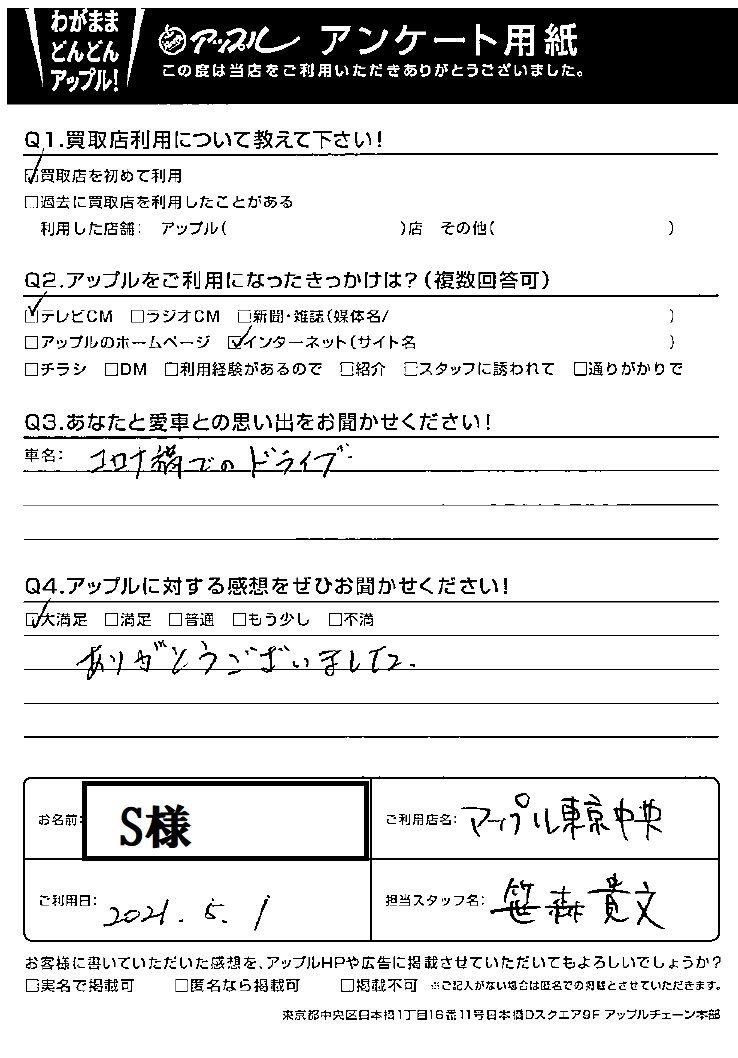 わがまま
どんどん
アップル!
アップル アンケート用紙
この度は当店をご利用いただきありがとうございました。
Q1.買取店利用について教えて下さい!
☑買取店を初めて利用
□過去に買取店を利用したことがある
利用した店舗: アップル( )店 その他( )
Q2.アップルをご利用になったきっかけは?(複数回答可)
☑テレビCM □ラジオCM □新聞・雑誌(媒体名/ )
□アップルのホームページ ☑インターネット(サイト名 )
□チラシ □DM □利用経験があるので □紹介 □スタッフに誘われて □通りがかりで
Q3.あなたと愛車との思い出をお聞かせください!
車名: コロナ禍でのドライブ
Q4.アップルに対する感想をぜひお聞かせください!
☑大満足 □満足 □普通 □もう少し □不満
ありがとうございました。
お名前: S様 ご利用店名: アップル東京中央
ご利用日: 2021.5.1 担当スタッフ名: 笹森貴文
お客様に書いていただいた感想を、アップルHPや広告に掲載させていただいてもよろしいでしょうか?
□実名で掲載可 □匿名なら掲載可 □掲載不可 ※ご記入がない場合は匿名での掲載とさせていただきます。
東京都中央区日本橋1丁目16番11号日本橋Dスクエア9F アップルチェーン本部